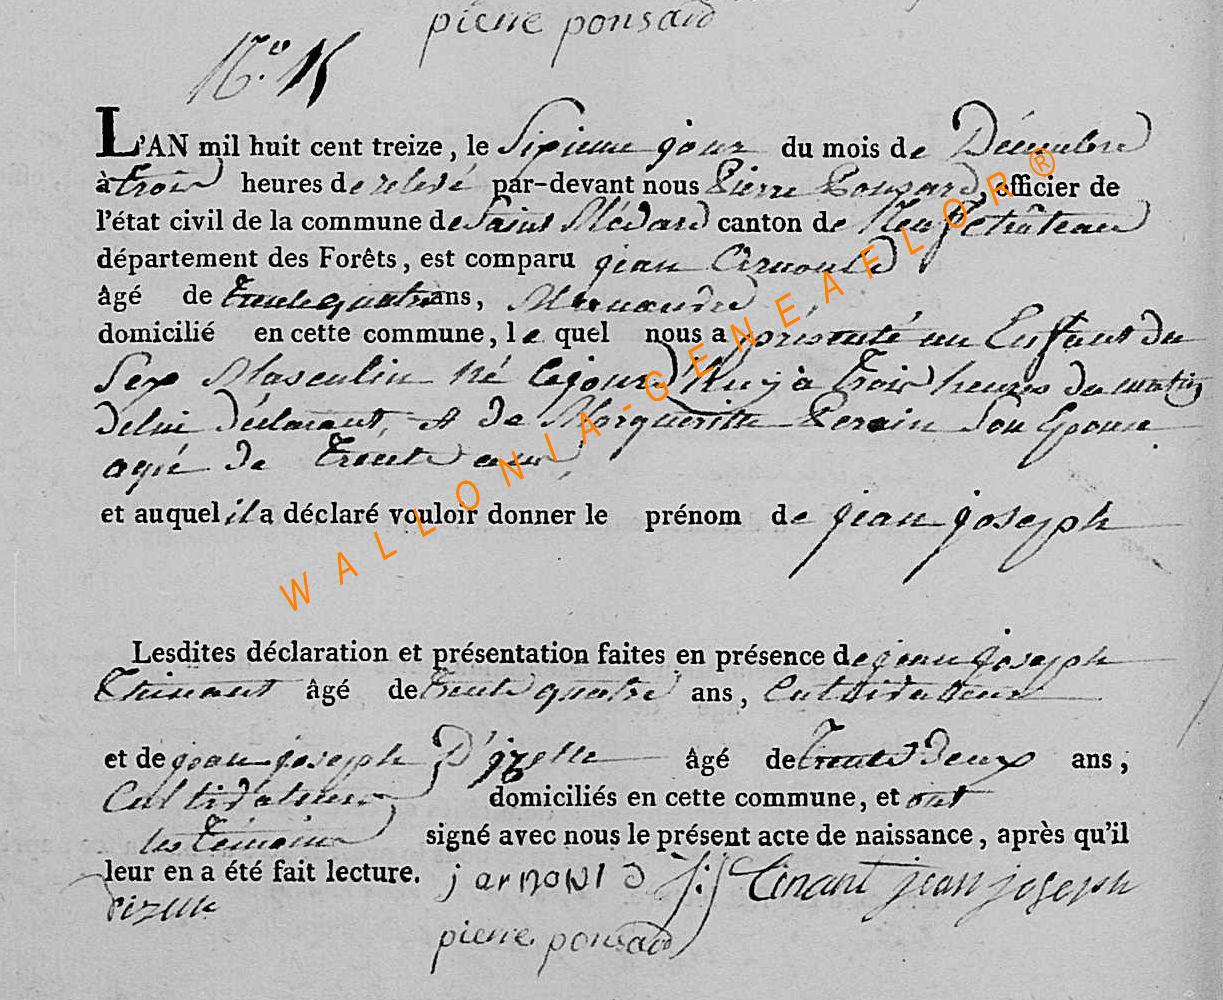 pierre ponsard
N.o 15
L'AN mil huit cent treize, le Sixieme jour du mois de Décembre
à trois heures de relevé par-devant nous Pierre Ponsard, officier de
l'état civil de la commune de Saint Médard canton de Neufchâteau
département des Forêts, est comparu jean Arnould
âgé de trente quatre ans,
domicilié en cette commune, le quel nous a présenté un Enfant du
Sex Masculin né cejourd'huy à trois heures du matin
delui déclarant, et de Marguerite Perain Son Epouse
agé de trente
et auquel il a déclaré vouloir donner le prénom de jean joseph
Lesdites déclaration et présentation faites en présence de jean joseph
Thinant âgé de trente quatre ans, Cultivateur
et de jean joseph D'izelle âgé de trente deux ans,
Cultivateur domiciliés en cette commune, et ont
les témoins signé avec nous le présent acte de naissance, après qu'il
leur en a été fait lecture. j arnould J: j tinant jean joseph
dizelle
pierre ponsard
WALLONIA-GENEAFLOR®